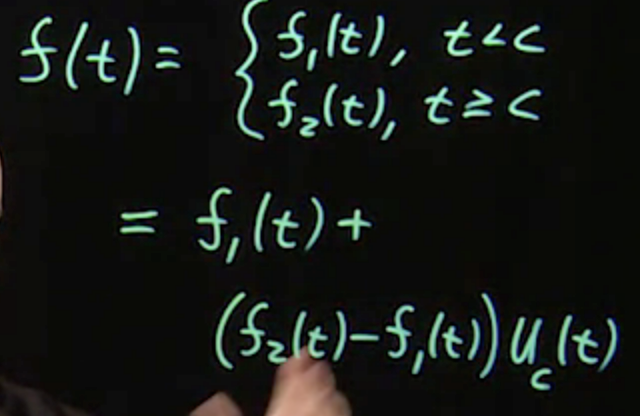 f(t) = { f₁(t), t < c
f₂(t), t ≥ c
= f₁(t) +
(f₂(t) - f₁(t)) u_c(t)